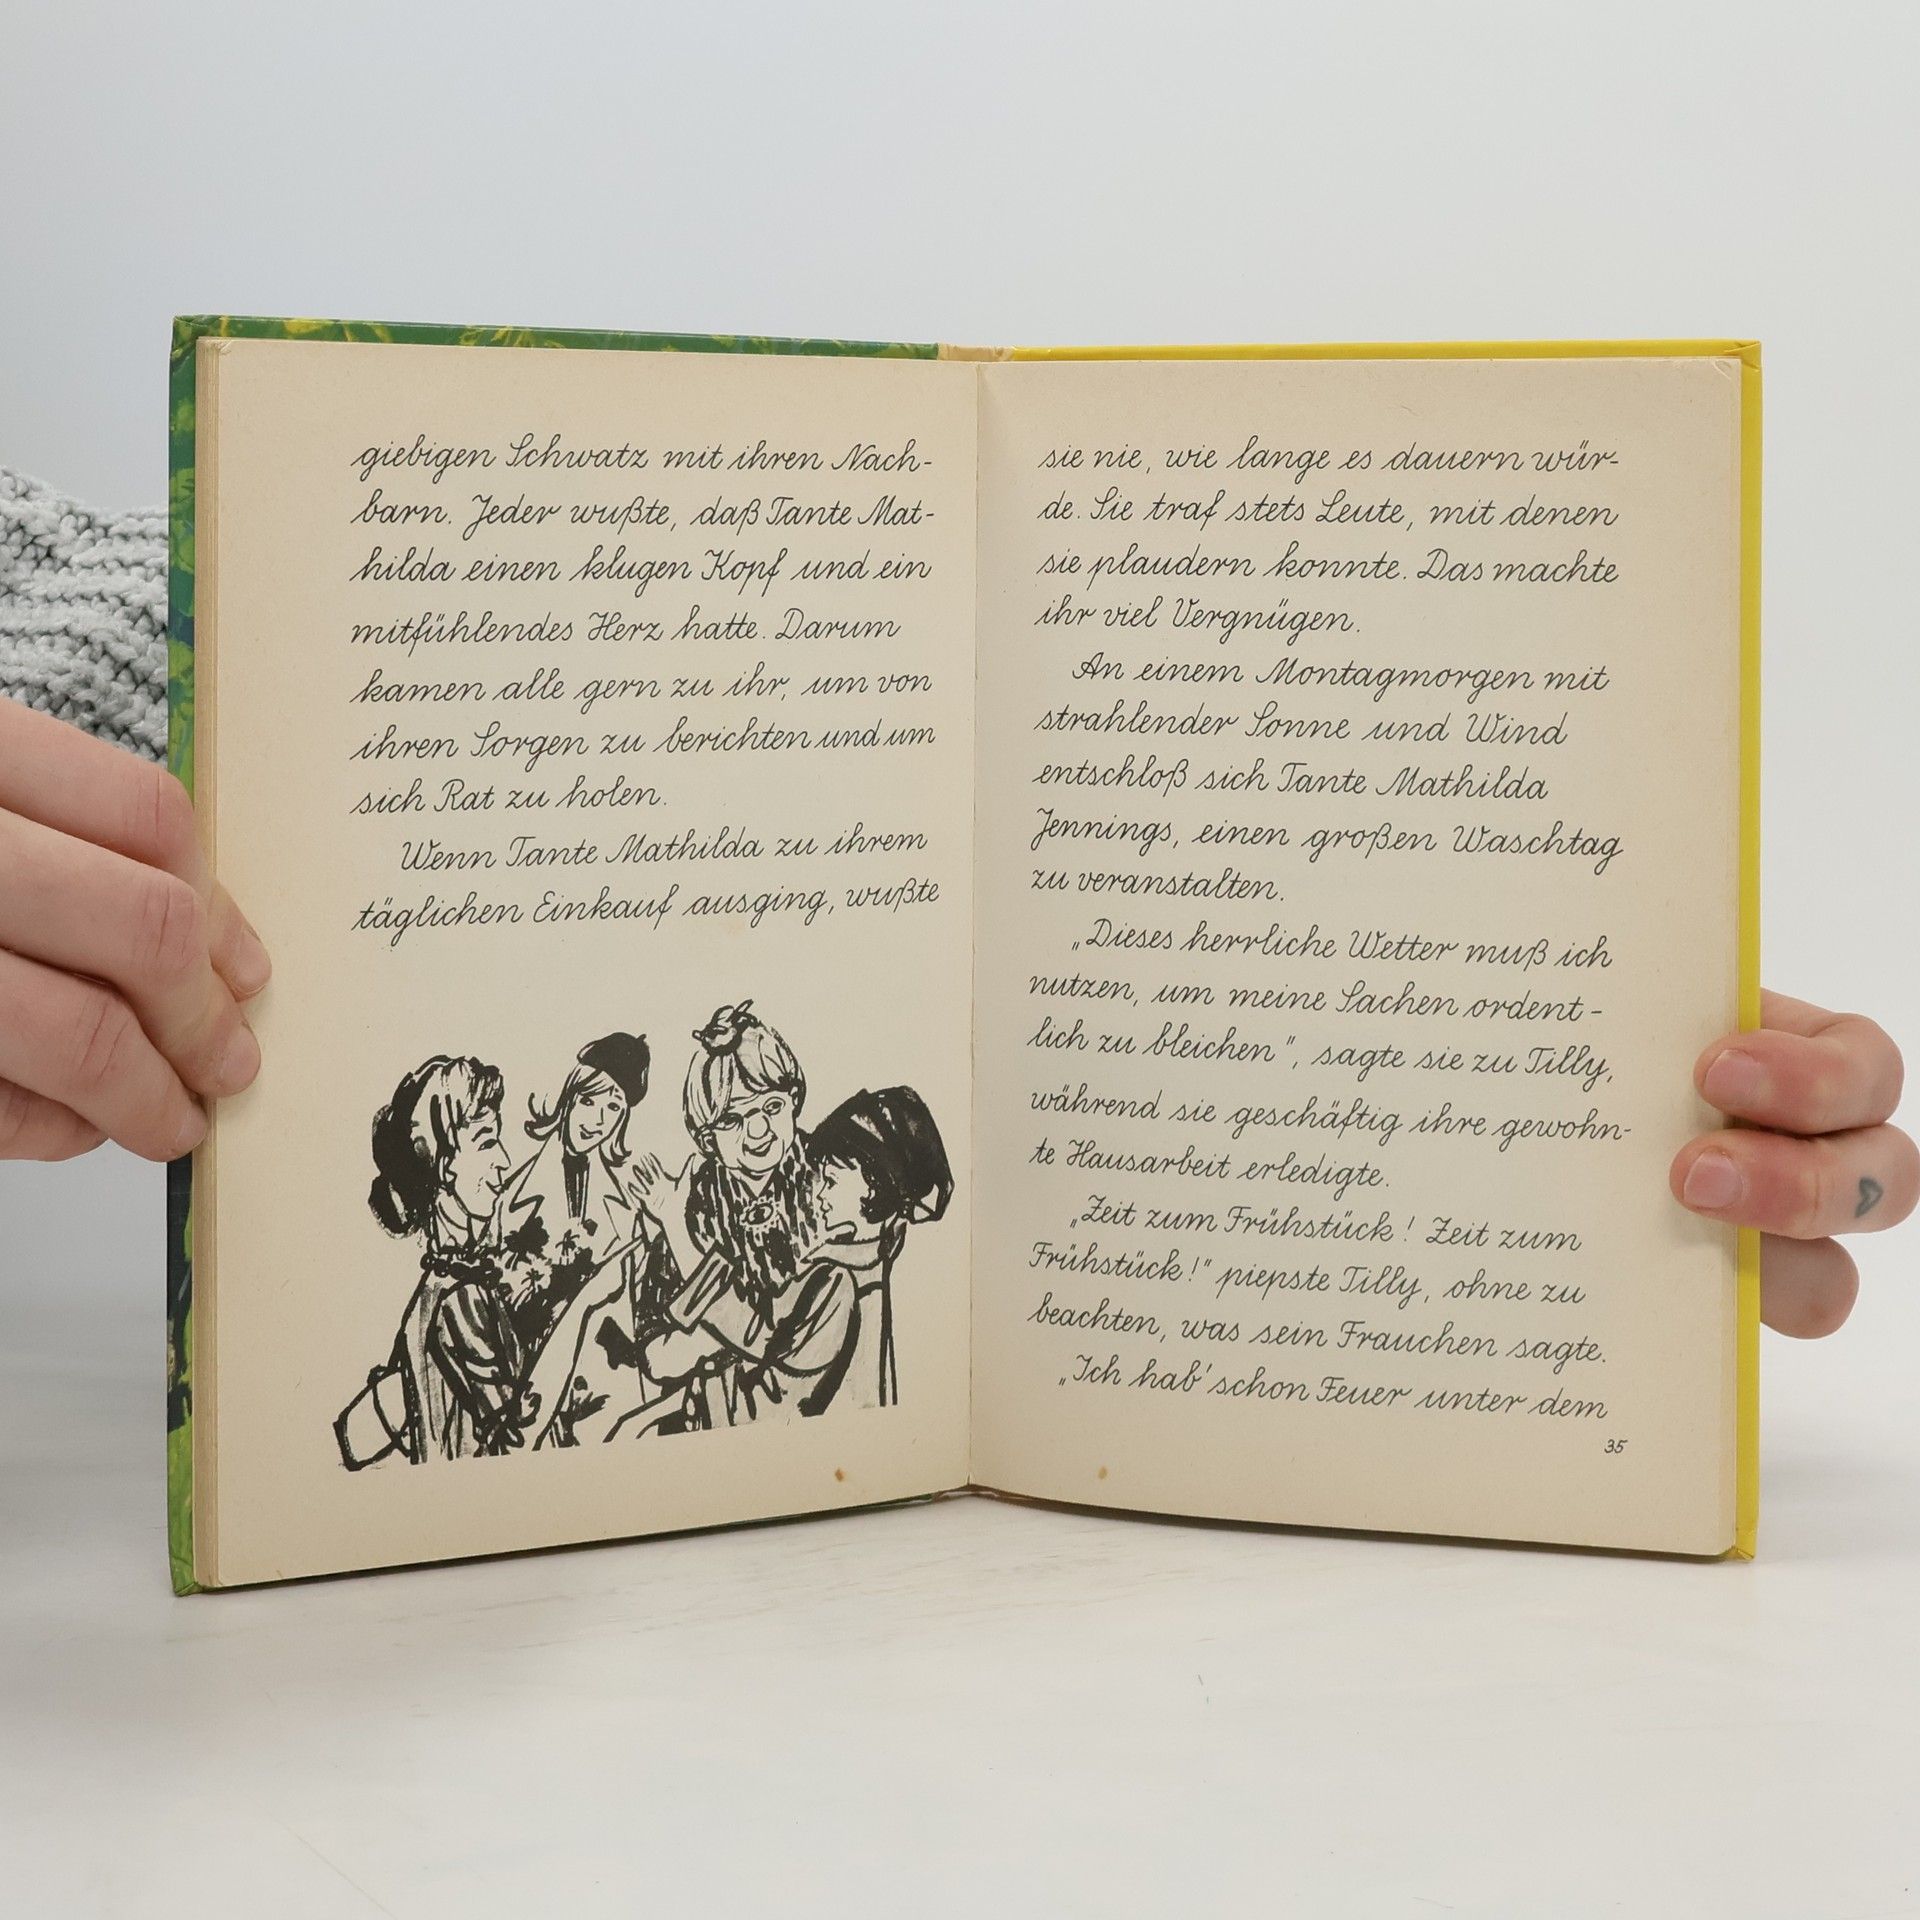 giebigen Schwatz mit ihren Nach-
barn. Jeder wußte, daß Tante Mat-
hilda einen klugen Kopf und ein
mitfühlendes Herz hatte. Darum
kamen alle gern zu ihr, um von
ihren Sorgen zu berichten und um
sich Rat zu holen.
Wenn Tante Mathilda zu ihrem
täglichen Einkauf ausging, wußte
sie nie, wie lange es dauern wür-
de. Sie traf stets Leute, mit denen
sie plaudern konnte. Das machte
ihr viel Vergnügen.
An einem Montagmorgen mit
strahlender Sonne und Wind
entschloß sich Tante Mathilda
Jennings, einen großen Waschtag
zu veranstalten.
„Dieses herrliche Wetter muß ich
nutzen, um meine Sachen ordent-
lich zu bleichen", sagte sie zu Tilly,
während sie geschäftig ihre gewohn-
te Hausarbeit erledigte.
„Zeit zum Frühstück! Zeit zum
Frühstück!" piepste Tilly, ohne zu
beachten, was sein Frauchen sagte.
„Ich hab' schon Feuer unter dem
35